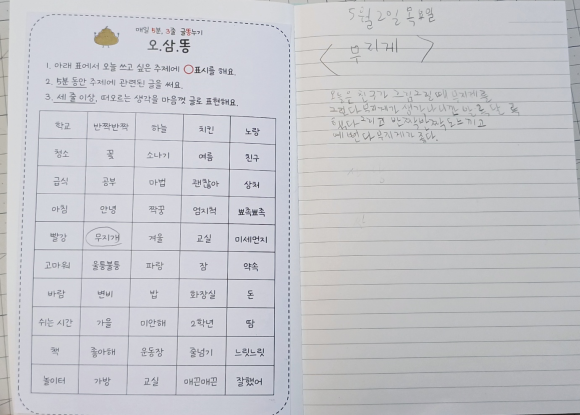 매일 5분, 3줄 글똥누기
오.삼.똥
1. 아래 표에서 오늘 쓰고 싶은 주제에 ○표시를 해요.
2. 5분 동안 주제에 관련된 글을 써요.
3. 세 줄 이상, 떠오르는 생각을 마음껏 글로 표현해요.
학교 반짝반짝 하늘 치킨 노랑
청소 꽃 소나기 여름 친구
급식 공부 마법 괜찮아 상처
아침 안녕 짝꿍 엄지척 뾰족뾰족
빨강 무지개 겨울 교실 미세먼지
고마워 울퉁불퉁 파랑 잠 약속
바람 변비 밥 화장실 돈
쉬는 시간 가을 미안해 2학년 땀
책 좋아해 운동장 줄넘기 느릿느릿
놀이터 가방 교실 매끈매끈 잘했어
5월 2일 목요일
<무지게>
오늘은 친구가 그림 그릴 때 무지게를
무지게가
그리고 반짝반짝
무지게가 좋다.